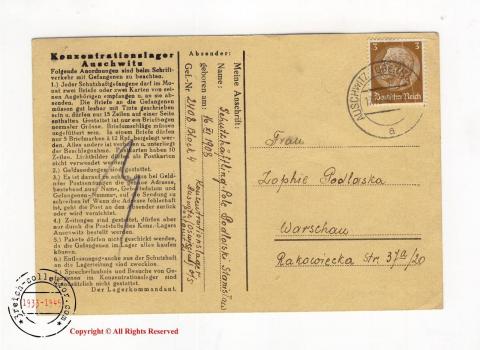 Konzentrationslager
Auschwitz
Folgende Anordnungen sind beim Schrift-
verkehr mit Gefangenen zu beachten.
1.) Jeder Schutzhaftgefangene darf im Mo-
nat zwei Briefe oder zwei Karten von sei-
nen Angehörigen empfangen u. an sie ab-
senden. Die Briefe an die Gefangenen
müssen gut lesbar mit Tinte geschrieben
sein u. dürfen nur 15 Zeilen auf einer Seite
enthalten. Gestattet ist nur ein Briefbogen
normaler Grösse. Briefumschläge müssen
ungefüttert sein. In einem Briefe dürfen
nur 5 Briefmarken à 12 Rpf. beigelegt werden.
Alles andere ist verboten u. unterliegt
der Beschlagnahme. Postkarten haben 10
Zeilen. Lichtbilder dürfen als Postkarten
nicht verwendet werden.
2.) Geldsendungen sind gestattet.
3.) Es ist darauf zu achten, dass bei Geld-
oder Postsendungen die genaue Adresse,
bestehend aus: Name, Geburtsdatum und
Gefangenen-Nummer, auf die Sendung zu
schreiben ist. Wenn die Adresse fehlerhaft
ist, geht die Post an den Absender zurück
oder wird vernichtet.
4.) Zeitungen sind gestattet, dürfen aber
nur durch die Poststelle des Konz.-Lagers
Auschwitz bestellt werden.
5.) Pakete dürfen nicht geschickt werden,
da die Gefangenen im Lager alles kaufen
können.
6.) Entlassungsgesuche aus der Schutzhaft
an die Lagerleitung sind zwecklos.
7.) Sprecherlaubnis und Besuche von Ge-
fangenen im Konzentrationslager sind
grundsätzlich nicht gestattet.
Der Lagerkommandant.
Absender:
Meine Anschrift:
Name: Schutzhäftling Pole Podlaski Stanisław
geboren am: 16 XI 1908
Gef.-Nr. 2108 Block 4
Konzentrationslager
3
3
Deutsches Reich
AUSCHWITZ
a
Frau
Zophie Podlaska
Warschau
Rakowiecka Str. 37a/20
3reich-collector.com
1933-1945
Copyright © All Rights Reserved